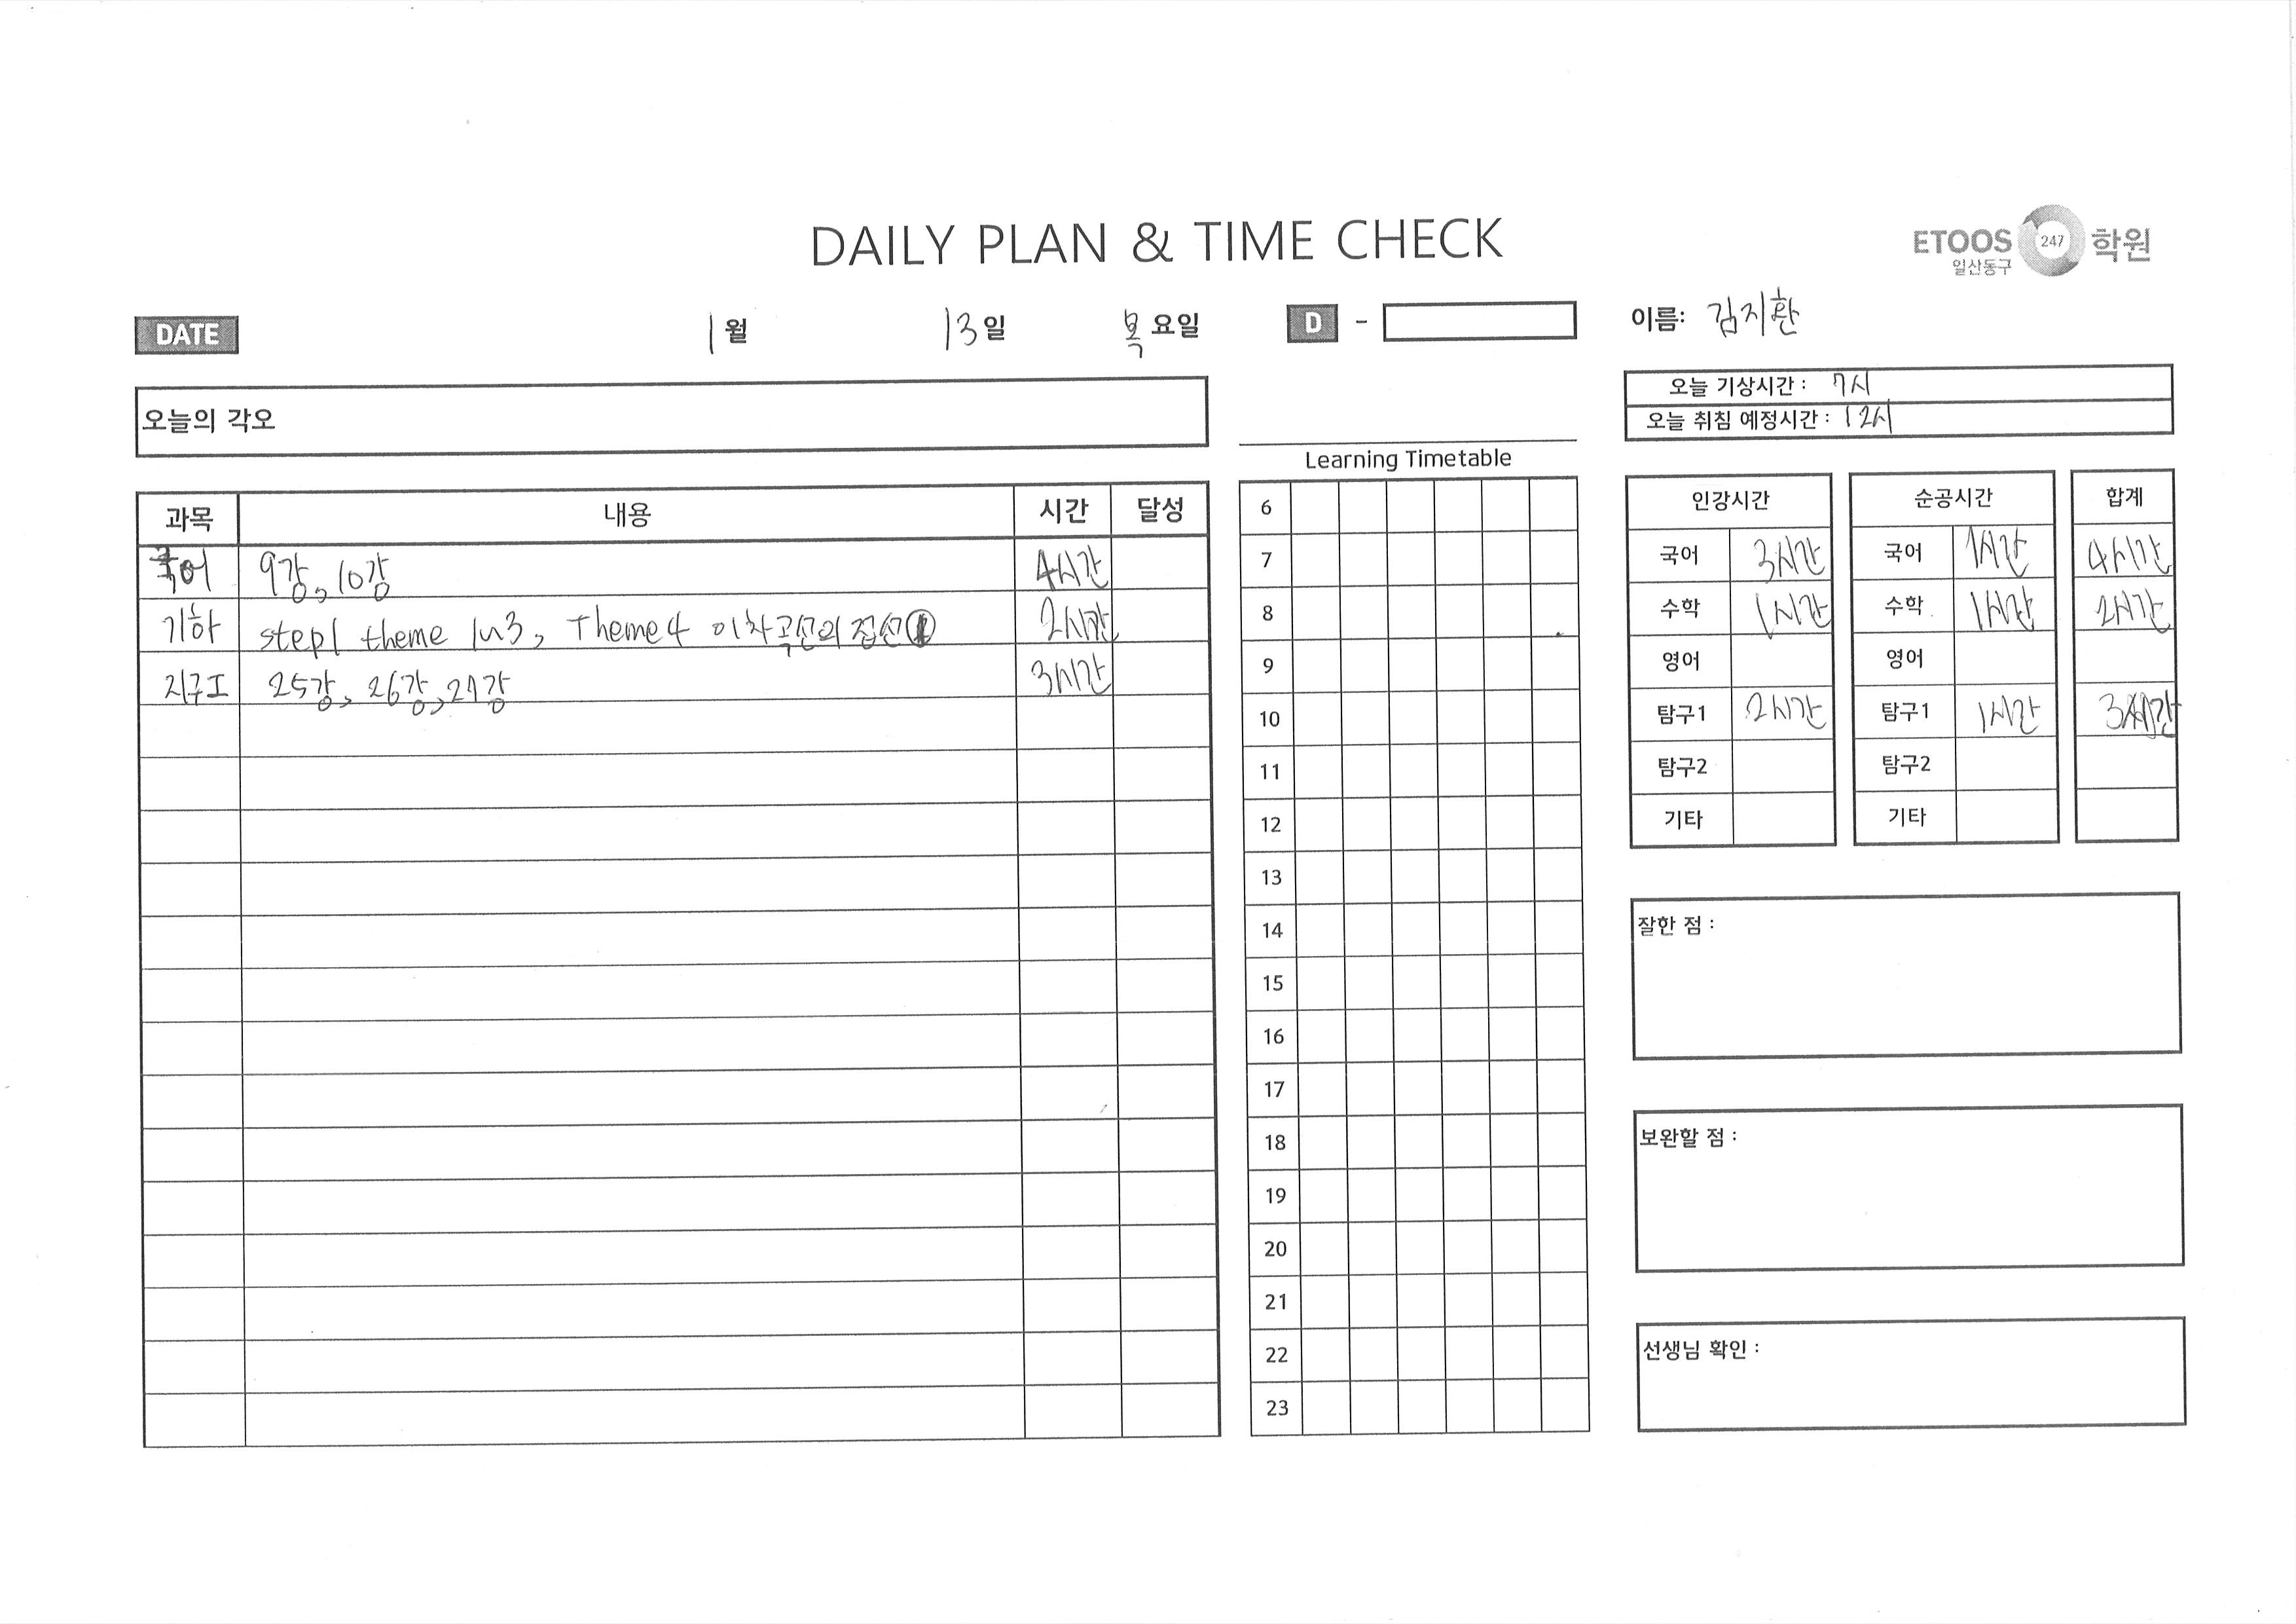 DAILY PLAN & TIME CHECK
ETOOS 247 학원
일산동구
DATE 1월 13일 목요일 D -
이름: 김지환
오늘의 각오
오늘 기상시간 : 7시
오늘 취침 예정시간 : 12시
과목 내용 시간 달성
국어 9강, 10강 4시간
기하 step1 theme 1~3, Theme4 이차곡선의 접선① 2시간
지구I 25강, 26강, 27강 3시간
Learning Timetable
6
7
8
9
10
11
12
13
14
15
16
17
18
19
20
21
22
23
인강시간 순공시간 합계
국어 3시간 국어 1시간 4시간
수학 1시간 수학 1시간 2시간
영어 영어
탐구1 2시간 탐구1 1시간 3시간
탐구2 탐구2
기타 기타
잘한 점 :
보완할 점 :
선생님 확인 :